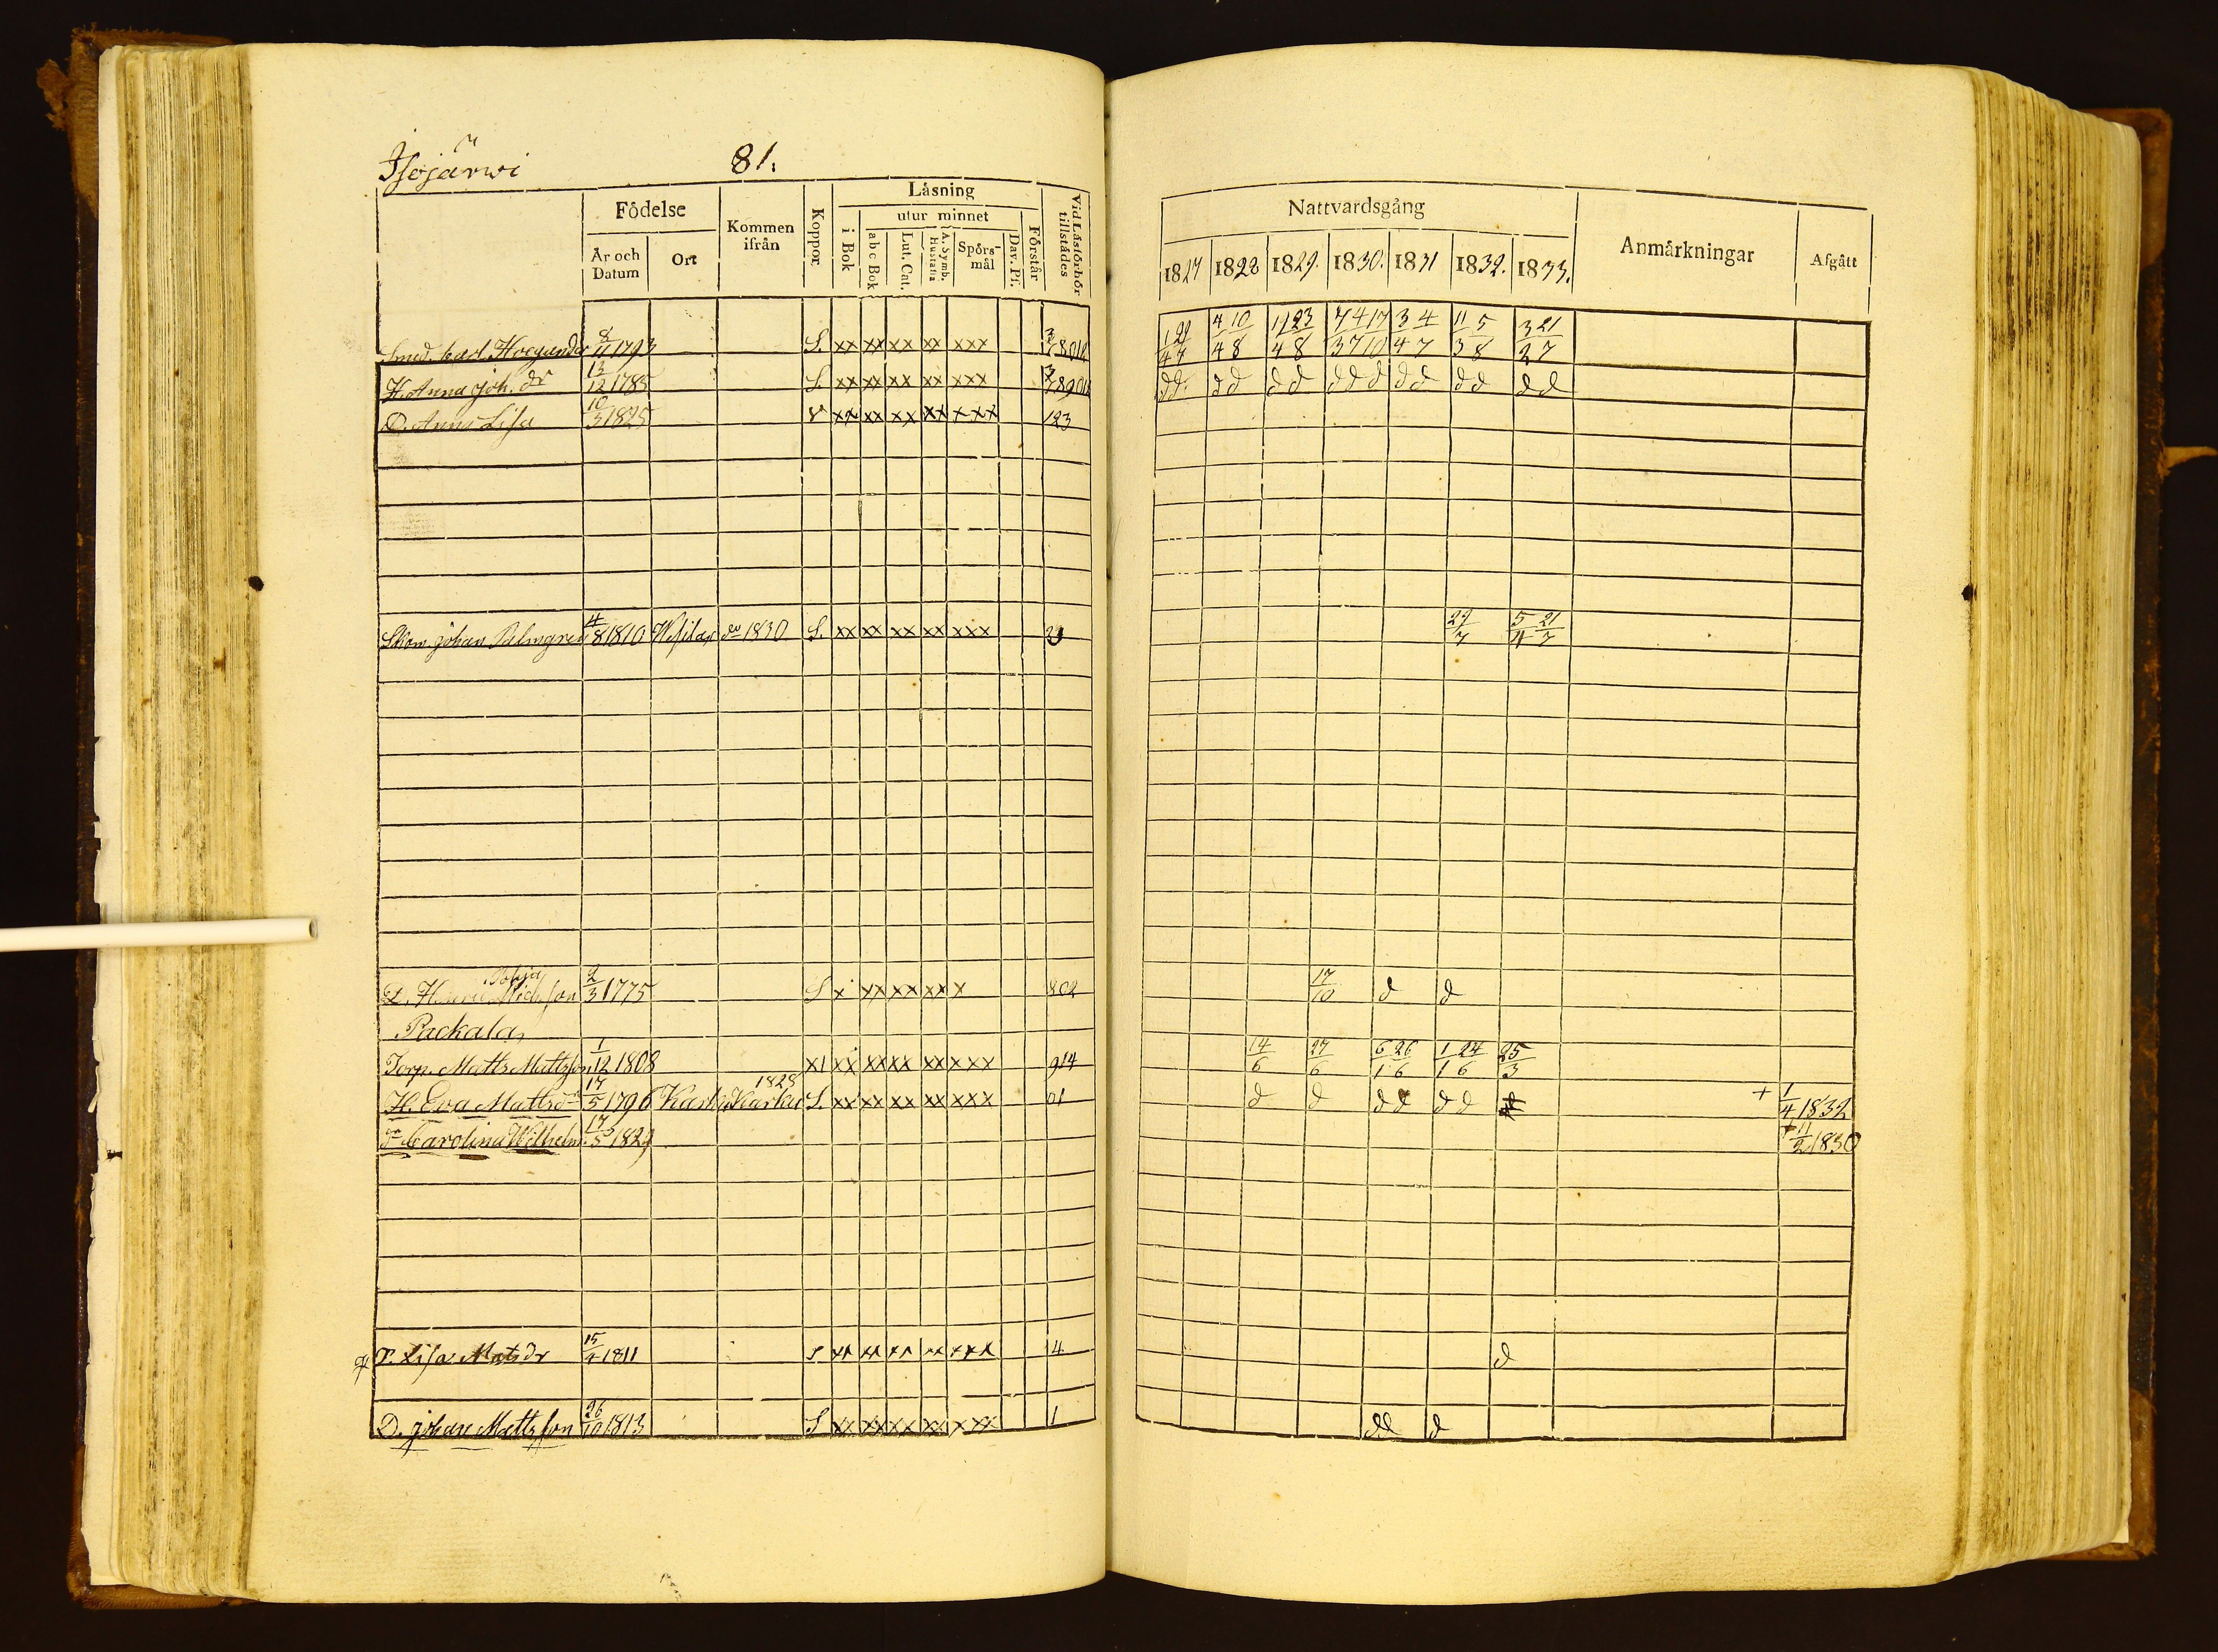 Isojärwi 81.
Födelse
År och Datum
Ort
Kommen ifrån
Koppor
Läsning
i Bok
utur minnet
a b c Bok
Lut. Cat.
A. Symb. Hustafla
Spörsmål
Dav. Ps.
Förstår
Vid Läsförhör tillstädes
Nattvardsgång
1827 1828 1829. 1830. 1831 1832. 1833.
Anmärkningar
Afgått
Smed. Carl 11 1793 S. xx xx xx xx xxx
H. Anna Joh. dr 13/12 1785 S. xx xx xx xx xxx dd. dd dd ddd dd dd dd
D. Anna Lisa 10/3 1825 xx xx xx xx xxx 123
Skom. Johan Palmgren 4/8 1810 1830 S. xx xx xx xx xxx 29/7 5 21
D. 2/3 1775 S x xx xx xx x 802 17/10 d d
Packala
Torp. Matts Mattsson 1/12 1808 xx xx xx xx xxx 914 14/6 27/6 6 26/1 6 1 24/1 6 25/3
H. Eva Mattsdr 17/5 1796 Karku Karku 1828 S. xx xx xx xx xxx 01 d d dd dd + 1/4 1832
Carolina Wilhelm. 17/5 1829 + 11/2 1830
P. Lisa Matsdr 15/4 1811 xx xx xx xx xxx 4 d
D. Johan Mattsson 26/10 1813 S xx xx xx xx xxx 1 dd d